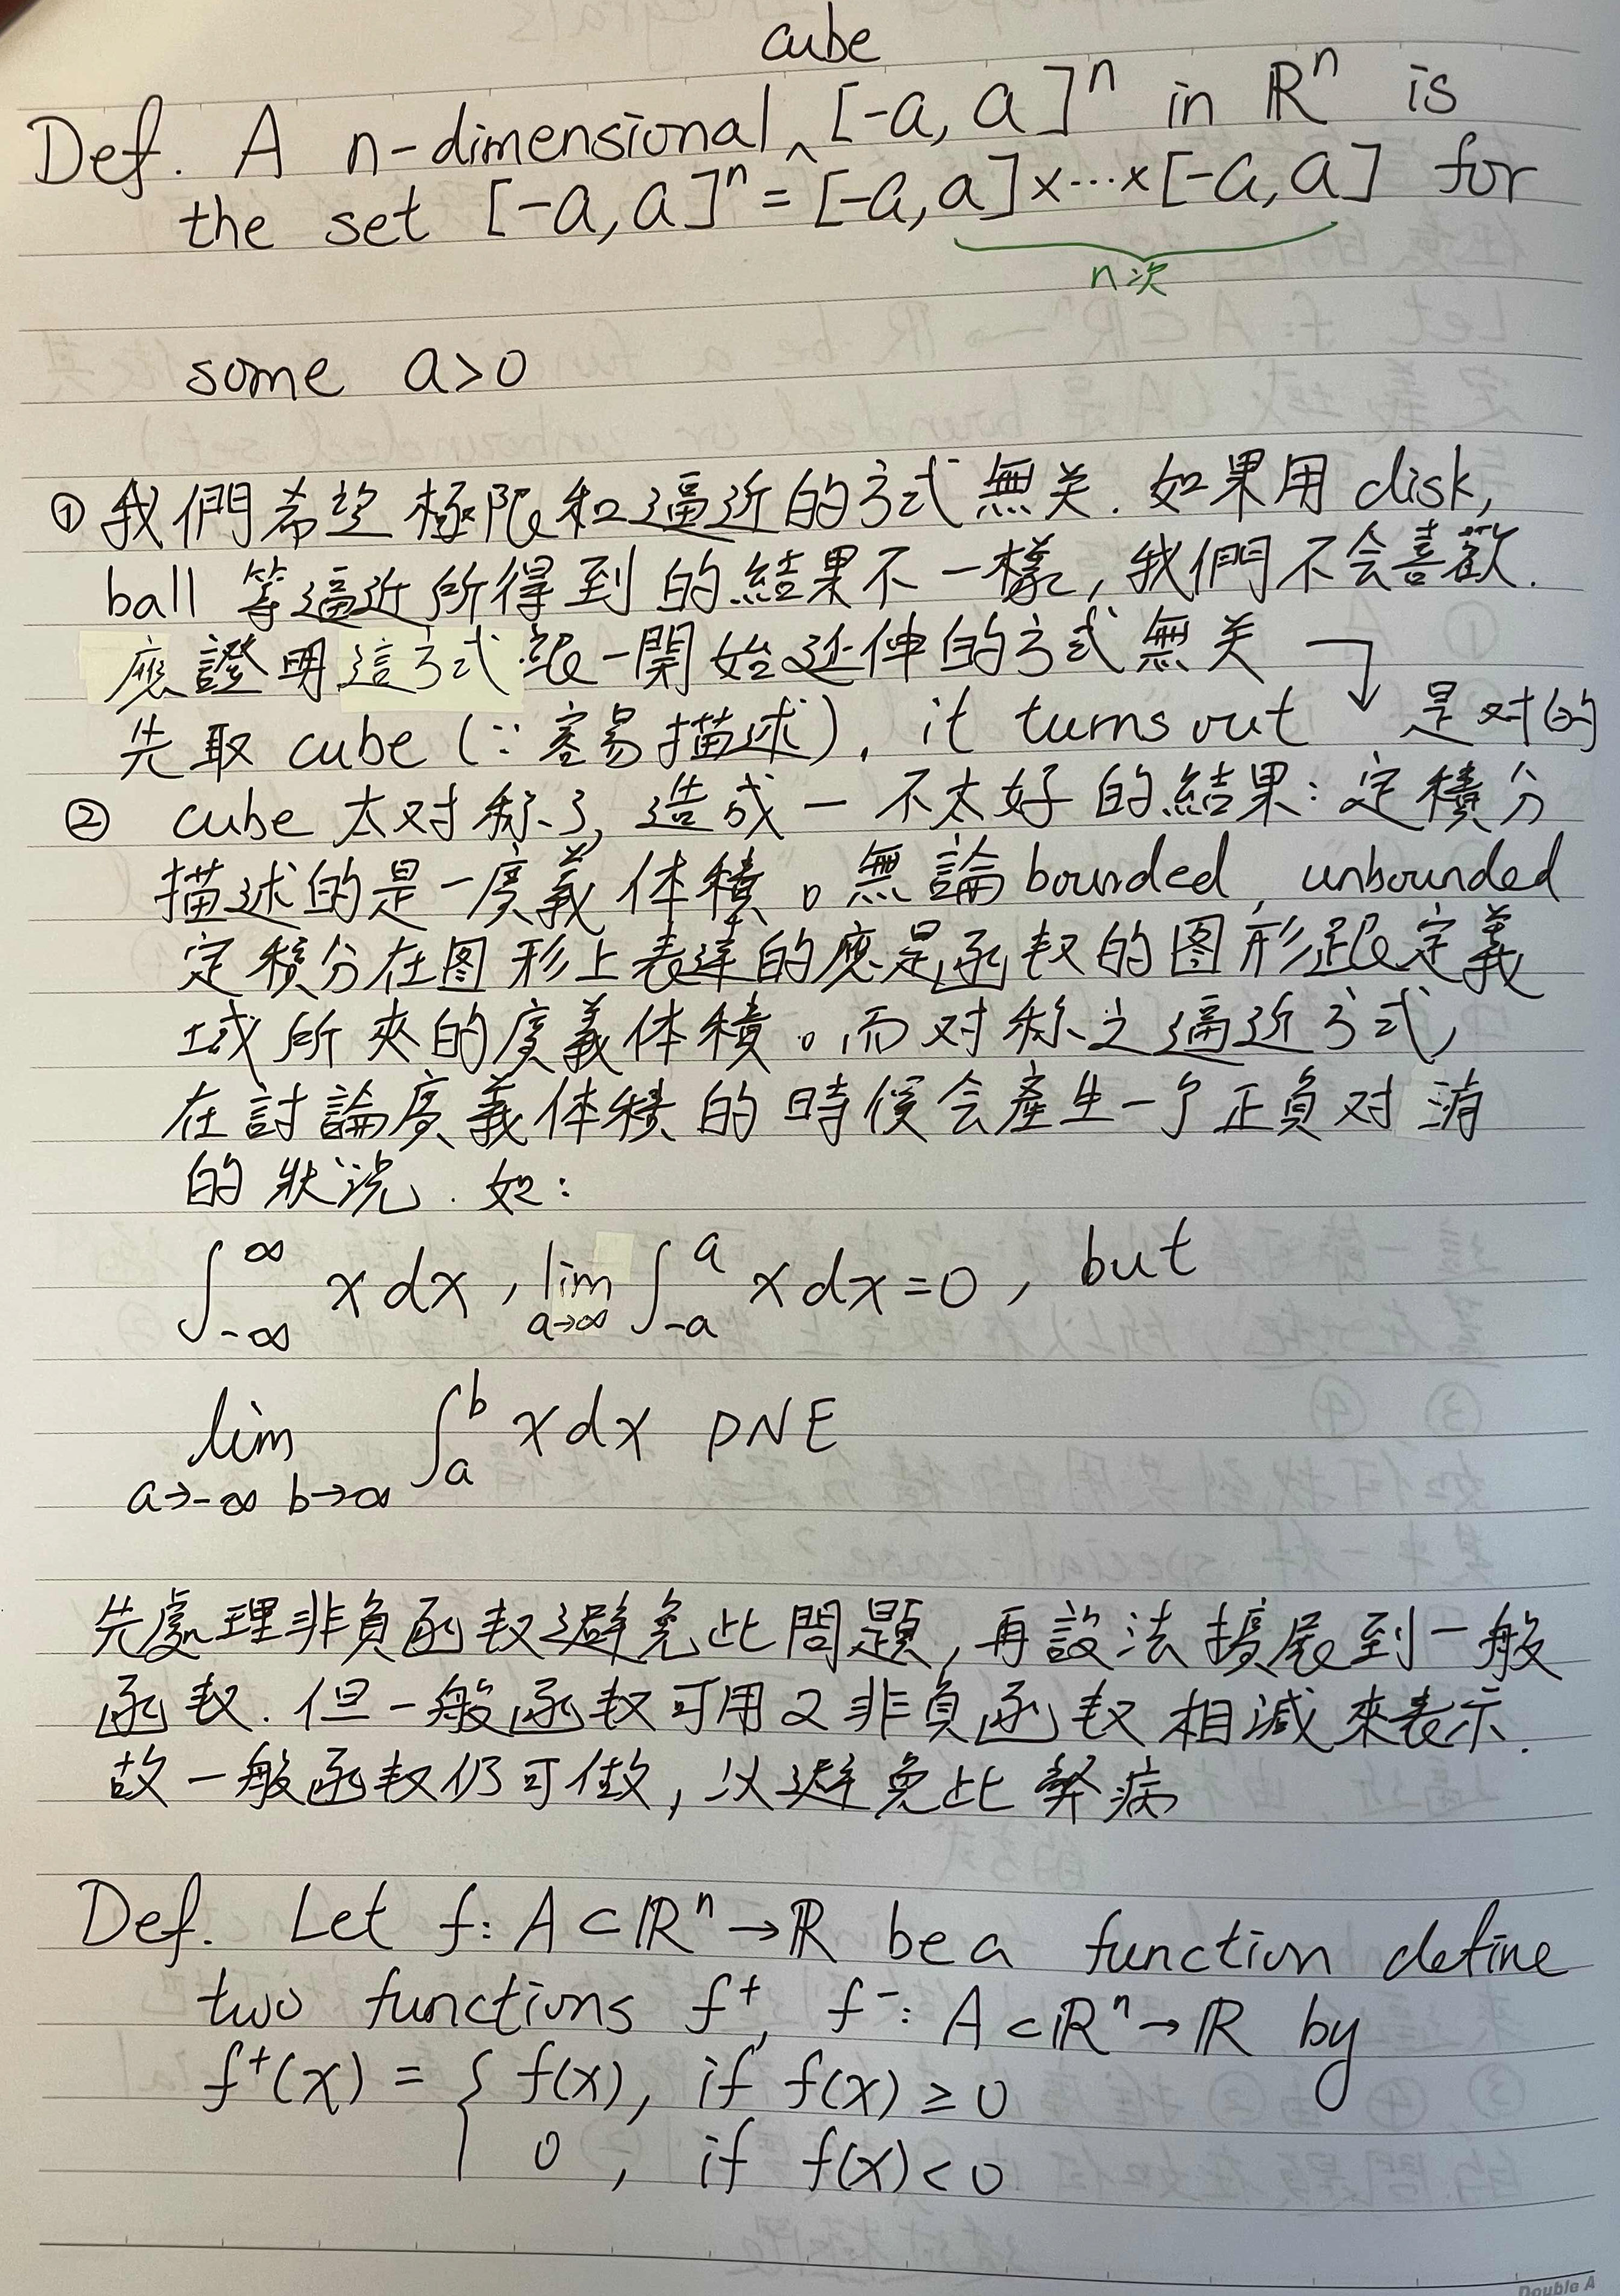 Def. A n-dimensional cube [-a, a]ⁿ in ℝⁿ is
the set [-a, a]ⁿ = [-a, a]×⋯×[-a, a] for
n次
some a>0
① 我們希望極限和逼近的方式無关. 如果用 disk,
ball 等逼近所得到的結果不一樣, 我們不会喜歡.
應證明這方式跟一開始延伸的方式無关
先取 cube (∵容易描述), it turns out ↓ 是对的
② cube 太对称了, 造成一不太好的結果: 定積分
描述的是一廣義体積。無論 bounded, unbounded
定積分在图形上表達的應是函数的图形跟定義
域所夾的廣義体積。而对称之逼近方式,
在討論廣義体積的時候会產生一个正負对消
的狀況. 如:
∫_{-∞}^{∞} x dx, lim_{a→∞} ∫_{-a}^{a} x dx = 0, but
lim_{a→-∞ b→∞} ∫_{a}^{b} x dx DNE
先處理非負函数避免此問題, 再設法擴展到一般
函数. 但一般函数可用2非負函数相減來表示.
故一般函数仍可做, 以避免此弊病
Def. Let f: A⊂ℝⁿ→ℝ be a function define
two functions f⁺, f⁻: A⊂ℝⁿ→ℝ by
f⁺(x) = { f(x), if f(x) ≥ 0
0, if f(x) < 0
Double A